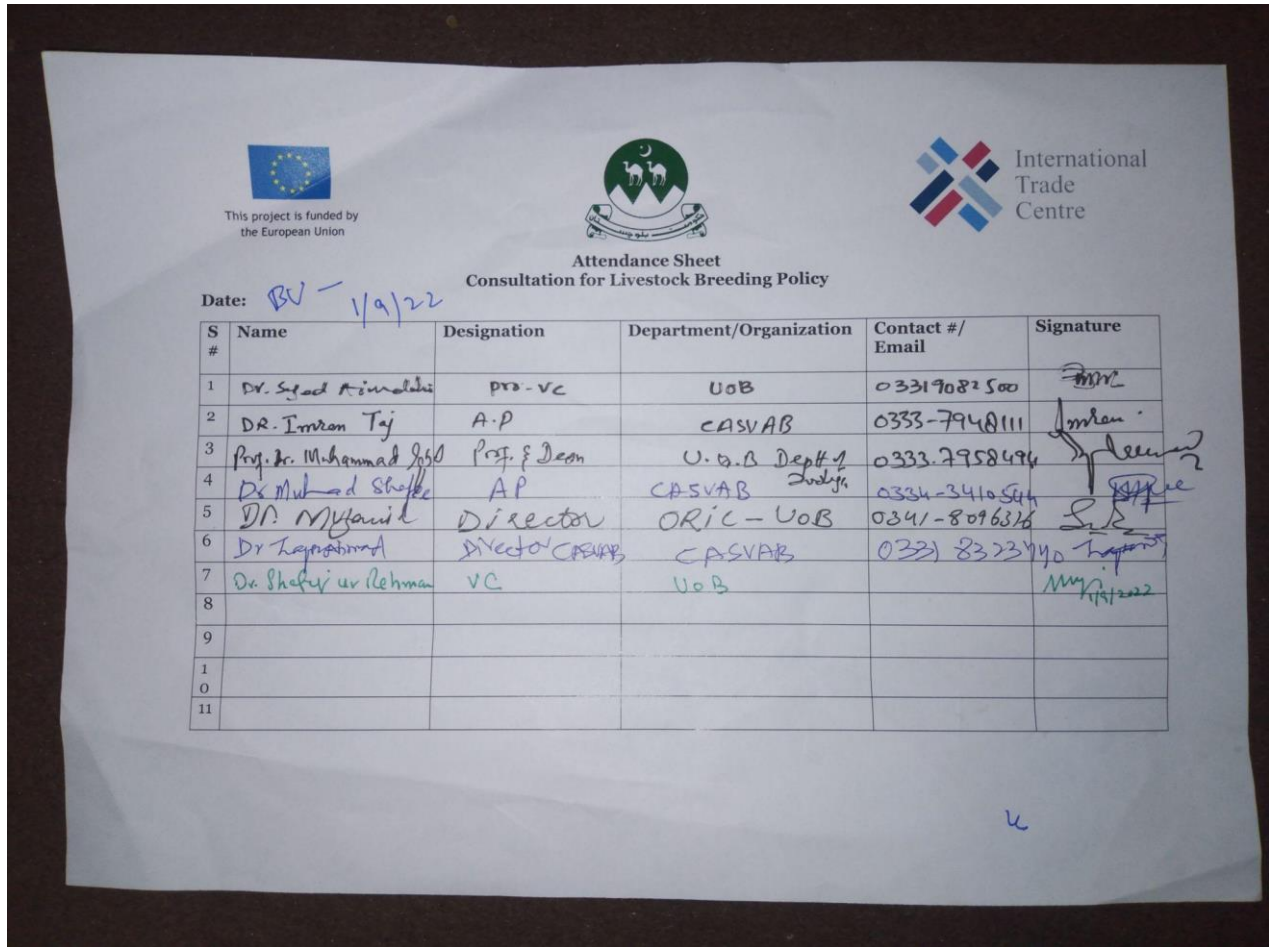 This project is funded by
the European Union
حکومت بلوچستان
International
Trade
Centre
Attendance Sheet
Consultation for Livestock Breeding Policy
Date: BU - 1/9/22
S # Name Designation Department/Organization Contact #/ Email Signature
1 Dr. Syed pro-VC UoB 03319082500
2 DR. Imran Taj A.P CASVAB 0333-7948111 Imran
3 Prof. Dr. Muhammad Prof. & Dean U.O.B Deptt of 0333-7958494
4 Dr Shafee AP CASVAB 0334-3410544
5 DR. Director ORIC-UOB 0341-8096316
6 Dr Director CASVAB CASVAB 0331
7 Dr. ur Rehman VC UoB 1/9/2022
8
9
10
11